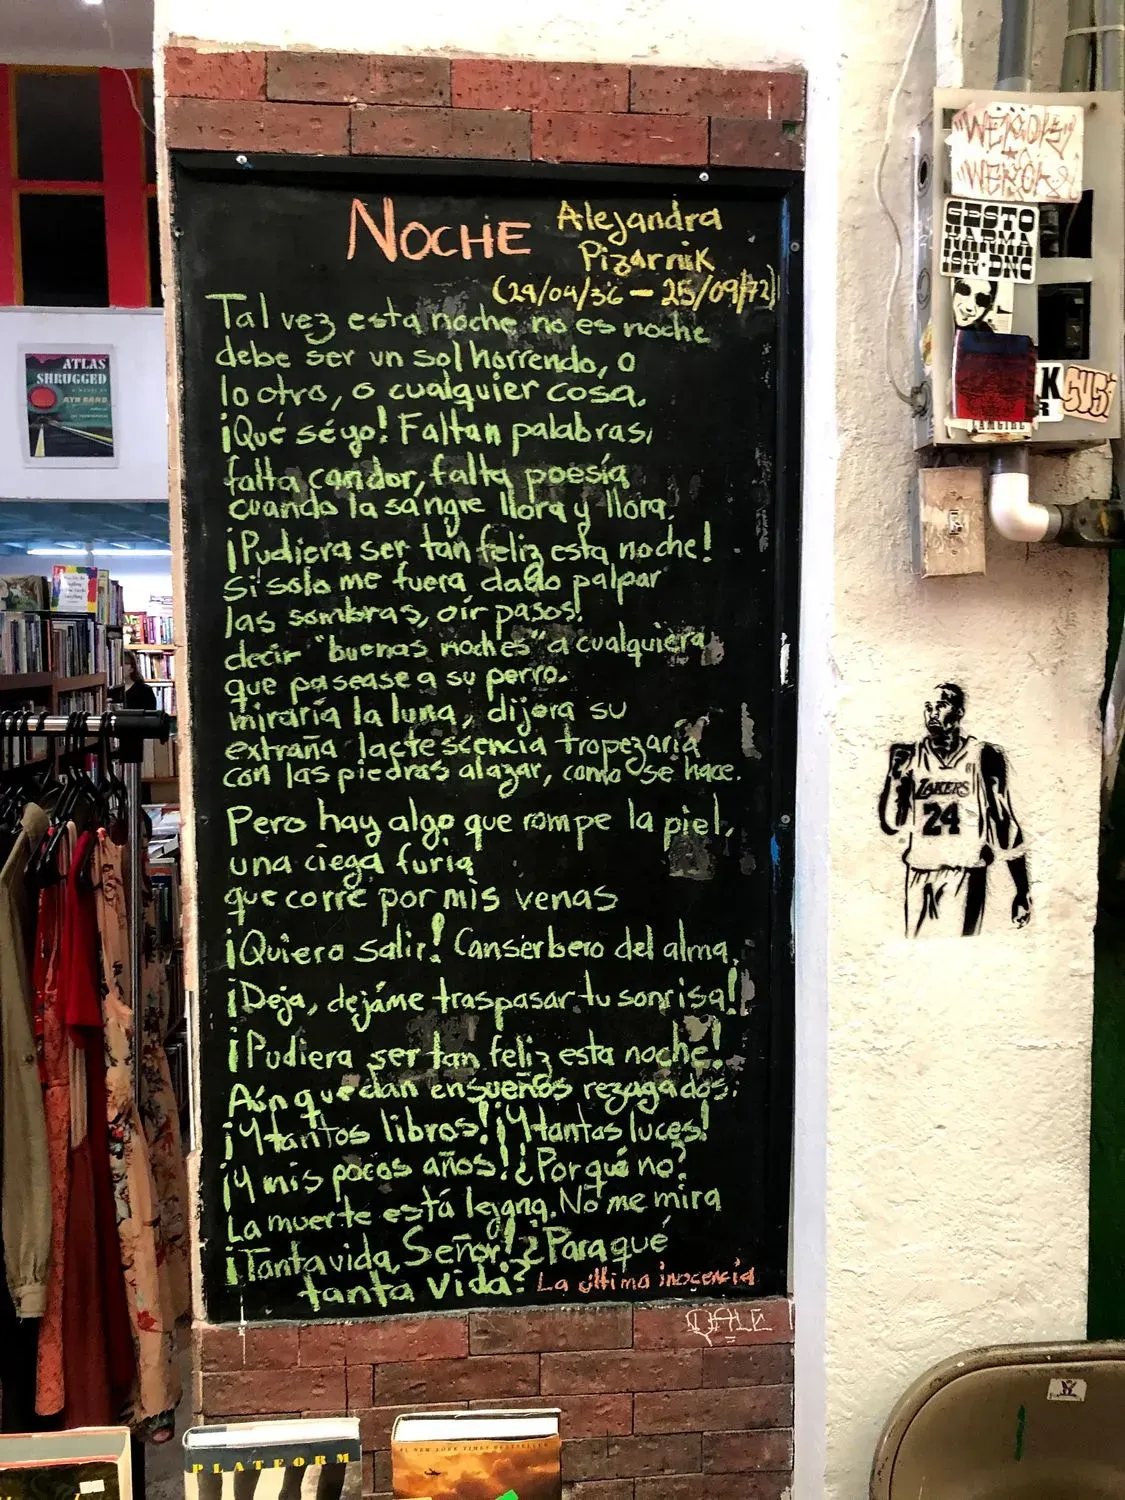 NOCHE
Alejandra
Pizarnik
(29/04/36 – 25/09/72)
Tal vez esta noche no es noche
debe ser un sol horrendo, o
lo otro, o cualquier cosa.
¡Qué sé yo! Faltan palabras,
falta candor, falta poesía
cuando la sangre llora y llora.
¡Pudiera ser tan feliz esta noche!
si solo me fuera dado palpar
las sombras, oír pasos!
decir "buenas noches" a cualquiera
que pasease a su perro.
miraría la luna, dijera su
extraña lactescencia tropezaría
con las piedras alazar, como se hace.
Pero hay algo que rompe la piel,
una ciega furia
que corre por mis venas
¡Quiero salir! Canserbero del alma.
¡Deja, dejáme traspasar tu sonrisa!
¡Pudiera ser tan feliz esta noche!
Aún quedan ensueños rezagados.
¡Y tantos libros! ¡Y tantas luces!
¡Y mis pocos años! ¿Por qué no?
La muerte está lejana. No me mira
¡Tanta vida, Señor! ¿Para qué
tanta vida?
La última inocencia
ATLAS
SHRUGGED
AYN RAND
GESTO
LAKERS
24
PLATFORM
#1 NEW YORK TIMES BESTSELLER